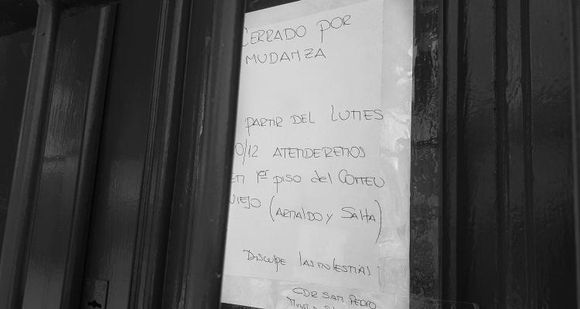 CERRADO POR
MUDANZA
PARTIR DEL LUNES
0/12 ATENDEREMOS
EN 1er piso del CORREO
VIEJO (ARNALDO y SALTA)
DISCUPE LAS MOLESTIAS
CDR SAN PEDRO